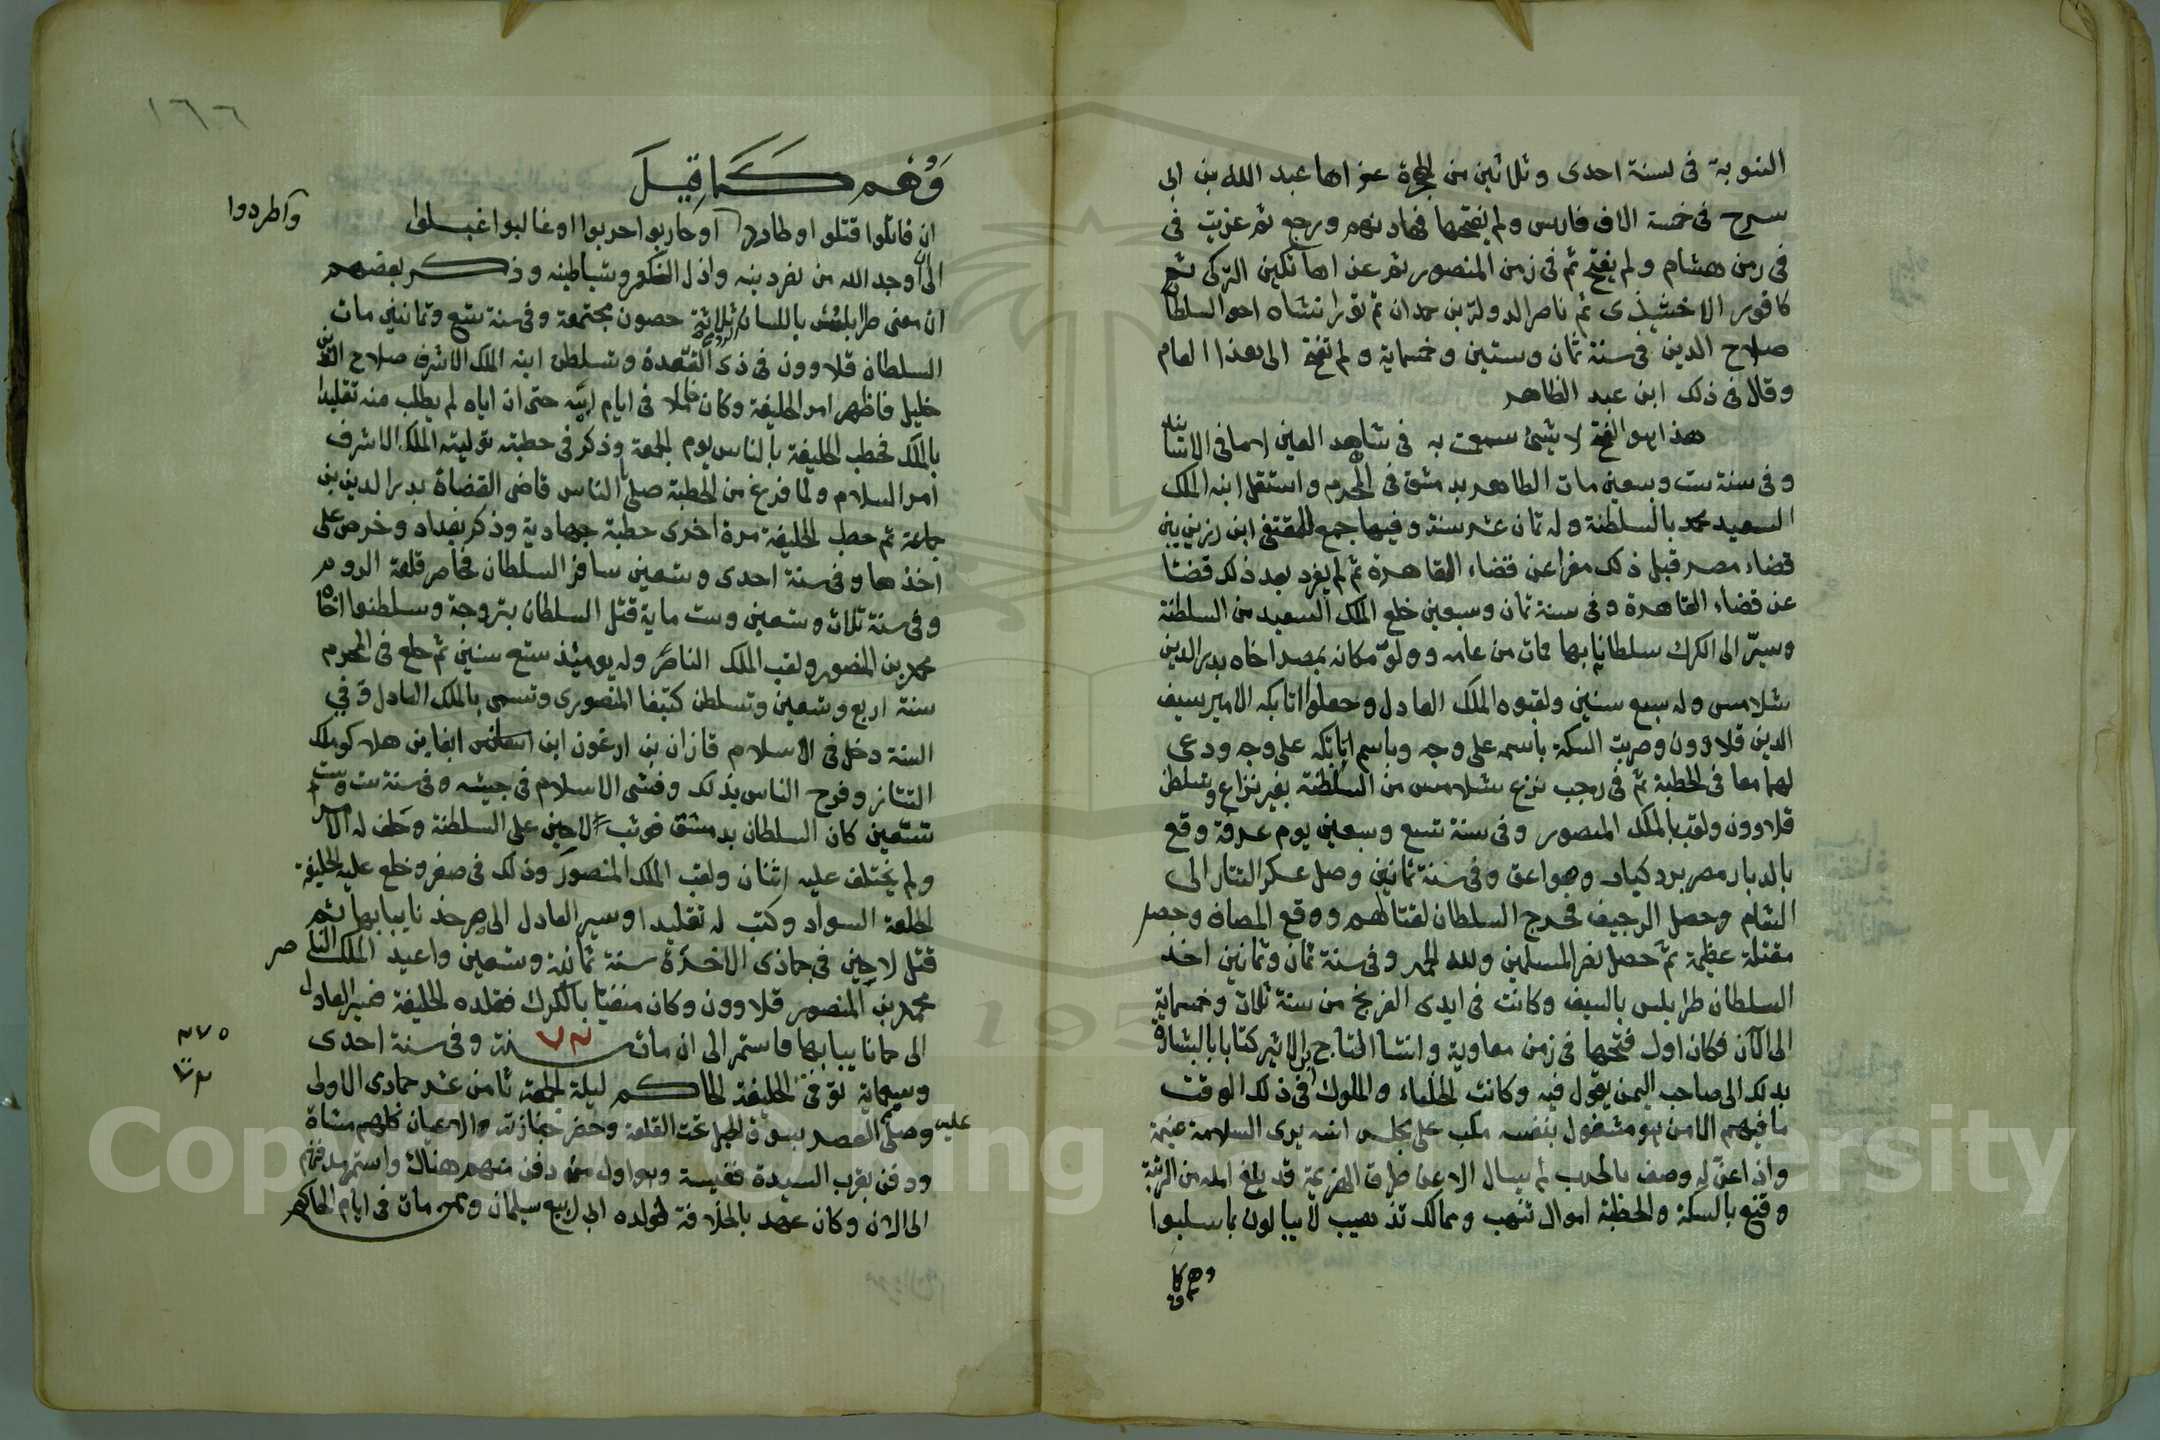 النوبة فى سنة احدى وثلاثين من الهجرة غزاها عبد الله بن ابى
سرح فى خمسة الاف فارس ولم يفتحها فهادنهم ورجع ثم غزيت فى
فى زمن هشام ولم يفتح ثم فى زمن المنصور ثم غزاها تكين التركى ثم
كافور الاخشيذى ثم ناصر الدولة بن حمدان ثم تورانشاه اخو السلطان
صلاح الدين فى سنة ثمان وستين وخمساية ولم تفتح الى هذا العام
وقال فى ذلك ابن عبد الظاهر
هذا هو الفتح لا شئ سمعت به فى شاهد العين لا ما فى الاسانيد
وفى سنة ست وسبعين مات الظاهر بدمشق فى المحرم واستقل ابنه الملك
السعيد محمد بالسلطنة وله ثمان عشر سنة وفيها جمع للمقتفى ابن رزين بين
قضاء مصر قبل ذلك مفرا عن قضاء القاهرة ثم لم يفرد بعد ذلك قضا
عن قضاء القاهرة وفى سنة ثمان وسبعين خلع الملك السعيد من السلطنة
وسيّر الى الكرك سلطانا بها فمات من عامه وولوّ مكانه بمصر اخاه بدر الدين
شلامس وله سبع سنين ولقبوه الملك العادل وجعلوا اتابكه الامير سيف
الدين قلاوون وضربت السكة باسمه على وجه وباسم اتابكه على وجه ودعى
لهما معا فى الخطبة ثم فى رجب نزع شلامس من السلطنة بغير نزاع وتسلطن
قلاوون ولقب بالملك المنصور وفى سنة تسع وسبعين يوم عرفة وقع
بالديار مصر برد كبار وصواعق وفى سنة ثمانين وصل عسكر التتار الى
الشام وحصل الرجيف فخرج السلطان لقتالهم ووقع المصاف وحصل
مقتلة عظيمة ثم حصل نصر المسلمين ولله الحمد وفى سنة ثمان وثمانين اخذ
السلطان طرابلس بالسيف وكانت فى ايدى الفرنج من سنة ثلاث وخمساية
الى الآن فكان اول فتحها فى زمن معاوية وانشا التاج بن الاثير كتابا بالبشارة
بذلك الى صاحب اليمن يقول فيه وكانت الخلفاء والملوك فى ذلك الوقت
ما فيهم الا من هو مشغول بنفسه مكب على مجلس انسه يرى السلامة غنيمة
واذا عنّ له وصف بالحرب لم يسال الا عن طرق الهزيمة قد بلغ امله من الرتبة
وقنع بالسكة والخطبة اموال تنهب وممالك تذهب لا يبالون بما سلبوا
وهم كما ق
١٦٦
وَهُم كَمَا قِيلَ
ان قاتلوا قتلو او طاردوا او حاربوا احربوا او غالبوا غبلوا
واطردوا
الى ان اوجد الله من نصر دينه واذل الكفر وشياطينه وذكر بعضهم
ان معنى طرابلس باللسان الرومى ثلاثة حصون مجتمعة وفى سنة تسع وثمانين مات
السلطان قلاوون فى ذى القعدة وتسلطن ابنه الملك الاشرف صلاح الدين
خليل فاظهر امر الخليفة وكان خاملا فى ايام ابيه حتى ان اباه لم يطلب منه تقليدا
بالملك فخطب الخليفة بالناس يوم الجمعة وذكر فى خطبته توليته الملك الاشرف
امر السلام ولما فرغ من الخطبة صلى بالناس قاضى القضاة بدر الدين بن
جماعة ثم خطب الخليفة مرة اخرى خطبة جهادية وذكر بغداد وحرض على
اخذها وفى سنة احدى وتسعين سافر السلطان فحاصر قلعة الروم
وفى سنة ثلاث وتسعين وست ماية قتل السلطان بتروجة وسلطنوا اخاه
محمد بن المنصور ولقب الملك الناصر وله يوميذ سبع سنين ثم خلع فى المحرم
سنة اربع وتسعين وتسلطن كتبغا المنصورى وتسمى بالملك العادل وفي
السنة دخل فى الاسلام قازان بن ارغون ابن ابغا بن هلاكو ملك
التتار وفرح الناس بذلك وفشى الاسلام فى جيشه وفى سنة ست
تسعين كان السلطان بدمشق فوثب لاجين على السلطنة وحلف له الامر
ولم يختلف عليه اثنان ولقب الملك المنصور وذلك فى صفر وخلع عليه الخليفة
الخلعة السواد وكتب له تقليدا وسير العادل الى صرخد نايبا بها ثم
قتل لاجين فى جمادى الاخرة سنة ثمانية وتسعين واعيد الملك الناصر
محمد بن المنصور قلاوون وكان منفيا بالكرك فقلده الخليفة فسير العادل
الى حماة نايبا بها فاستمر الى ان مات سنة ٧٠٢ وفى سنة احدى
وسبعماية توفى الخليفة الحاكم ليلة الجمعة ثامن عشر جمادى الاولى
وصلى عليه العصر بسوق الخيل تحت القلعة وحضر جنازته الاعيان كلهم مشاة
ودفن بقرب السيدة نفيسة وهو اول من دفن منهم هناك واستمر مدفنهم
الى الان وكان عهد بالخلافة لولده ابى الربيع سليمان وممن مات فى ايام الحاكم
Copyright © King Saud University